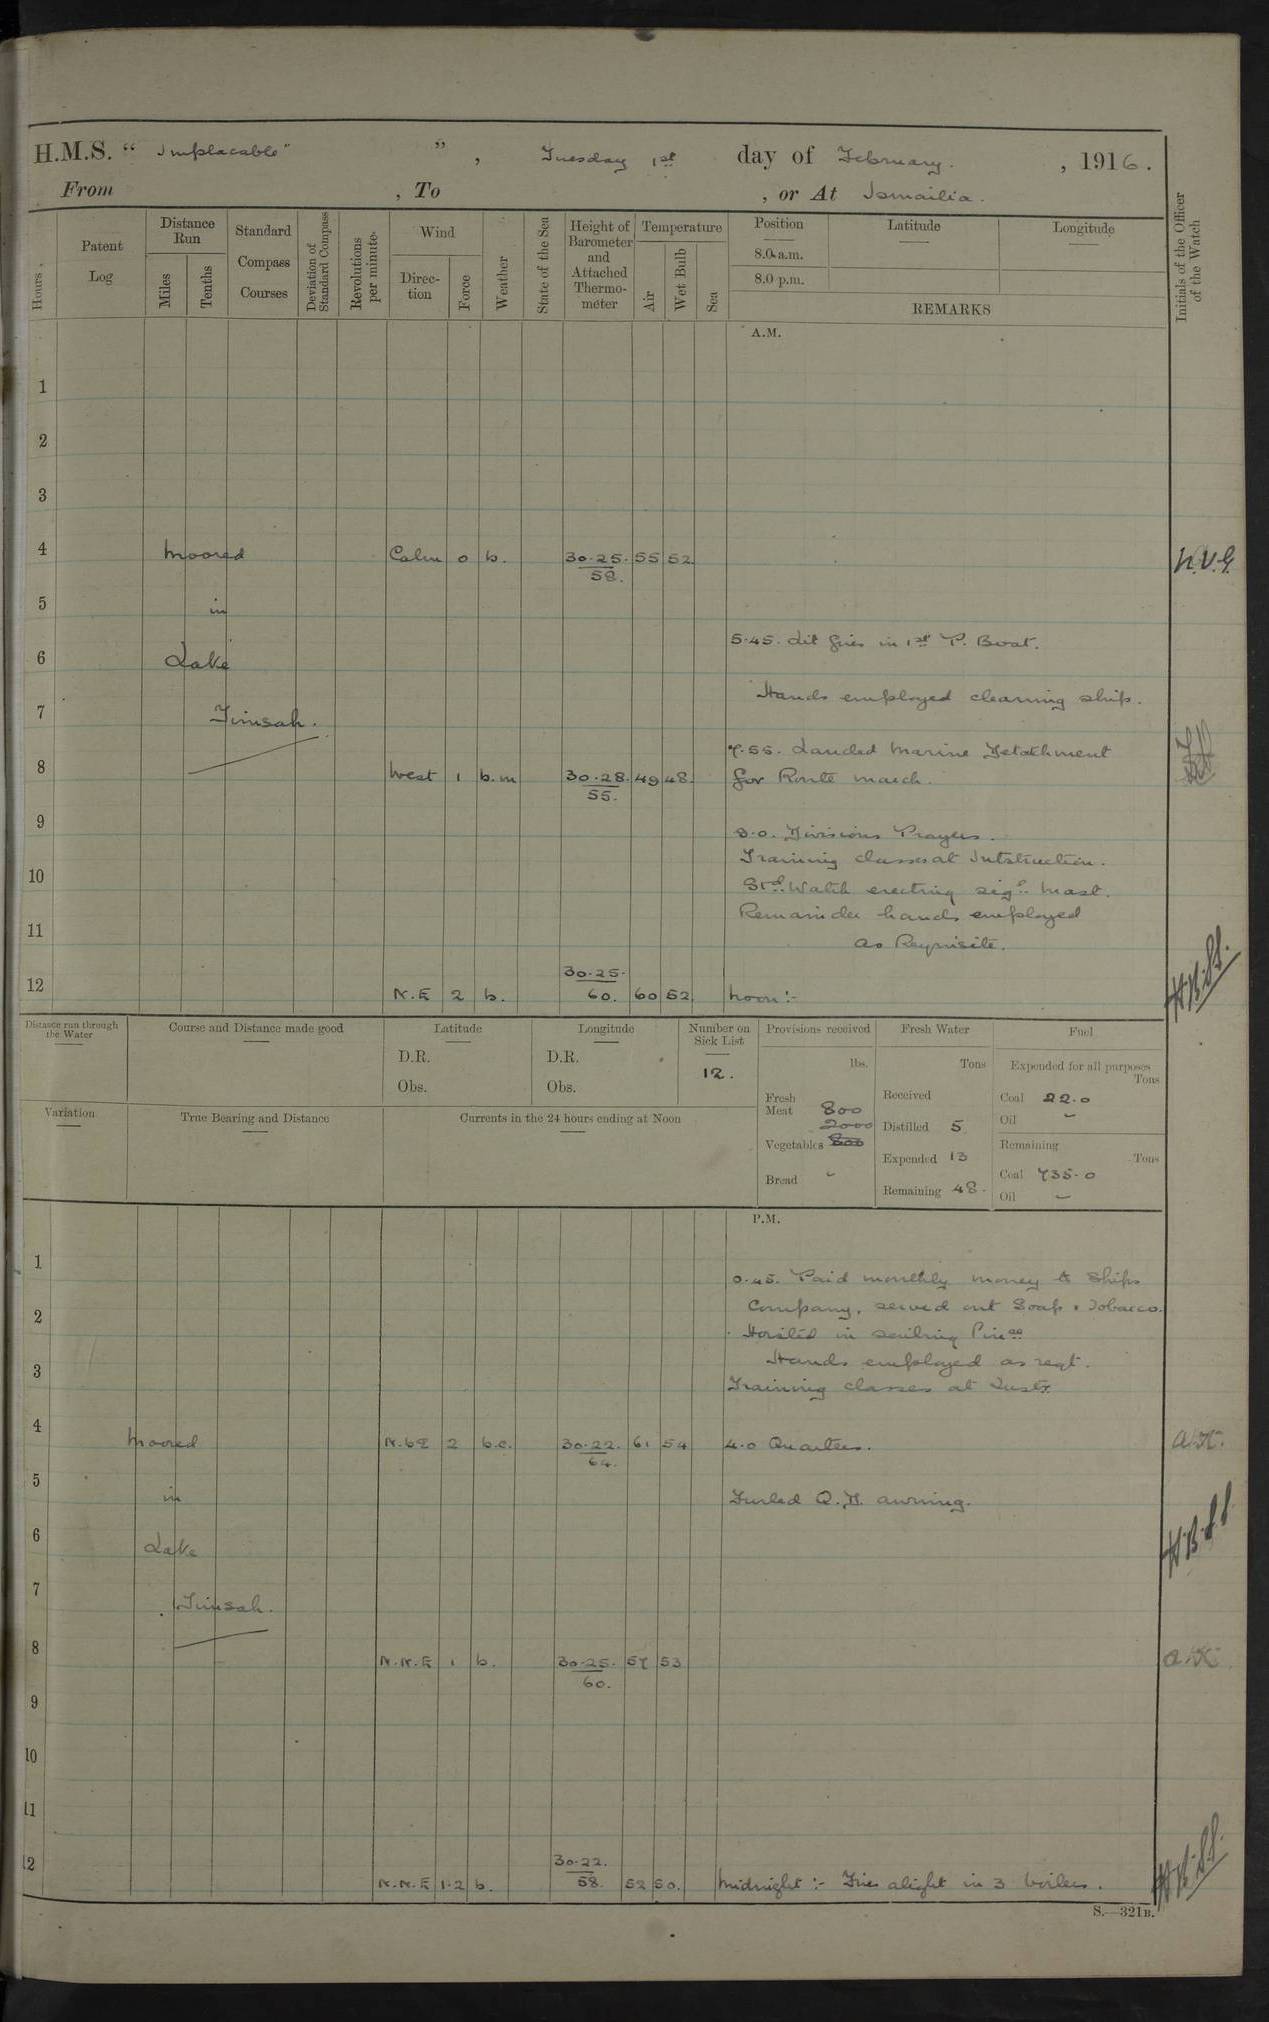 H.M.S. “ Implacable” ” , Tuesday 1st day of February. , 1916.
From , To , or At Ismailia.
Hours.
Patent Log
Distance Run
Miles
Tenths
Standard Compass Courses
Deviation of Standard Compass
Revolutions per minute.
Wind
Direc-tion
Force
Weather
State of the Sea
Height of Barometer and Attached Thermo-meter
Temperature
Air
Wet Bulb
Sea
Position
8.0 a.m.
8.0 p.m.
Latitude
Longitude
REMARKS
Initials of the Officer of the Watch
A.M.
1
2
3
4 Moored Calm 0 b. 30.25. 55 52 N.V.G.
58.
5 in
5.45. Lit fires in 1st P. Boat.
6 Lake
Hands employed cleaning ship.
7 Timsah.
7.55. Landed Marine Detatchment
8 West 1 b.m 30.28. 49 48. for Route march.
55.
9
9.0. Divisions Prayers.
Training classes at Intstruction.
10 Std. Watch erecting sigl. Mast.
Remainder hands employed
11 as Requisite.
30.25.
12 N.E 2 b. 60. 60 52 Noon :- H.B.S.S.
Distance run through the Water
Course and Distance made good
Latitude
D.R.
Obs.
Longitude
D.R.
Obs.
Number on Sick List
12.
Variation
True Bearing and Distance
Currents in the 24 hours ending at Noon
Provisions received
lbs.
Fresh Meat 800
2000
Vegetables 800
Bread -
Fresh Water
Tons
Received
Distilled 5
Expended 13
Remaining 48.
Fuel
Expended for all purposes
Tons
Coal 22.0
Oil -
Remaining
Tons
Coal 735.0
Oil -
P.M.
1
0.45. Paid monthly money to Ships
2 Company, served out Soap & Tobacco.
Hoisted in sailing Pince
3 Hands employed as reqt.
Training classes at Instr.
4 Moored N.bE 2 b.c. 30.22. 61 54 4.0 Quarters. A.K.
64.
5 in Furled Q.D. awning.
6 Lake H.B.S.S.
7 Timsah.
8 N.N.E 1 b. 30.25. 57 53 A.K.
60.
9
10
11
30.22.
12 N.N.E 1.2 b. 58. 52 50. Midnight :- Fires alight in 3 boilers. H.B.S.S.
S.—321B.